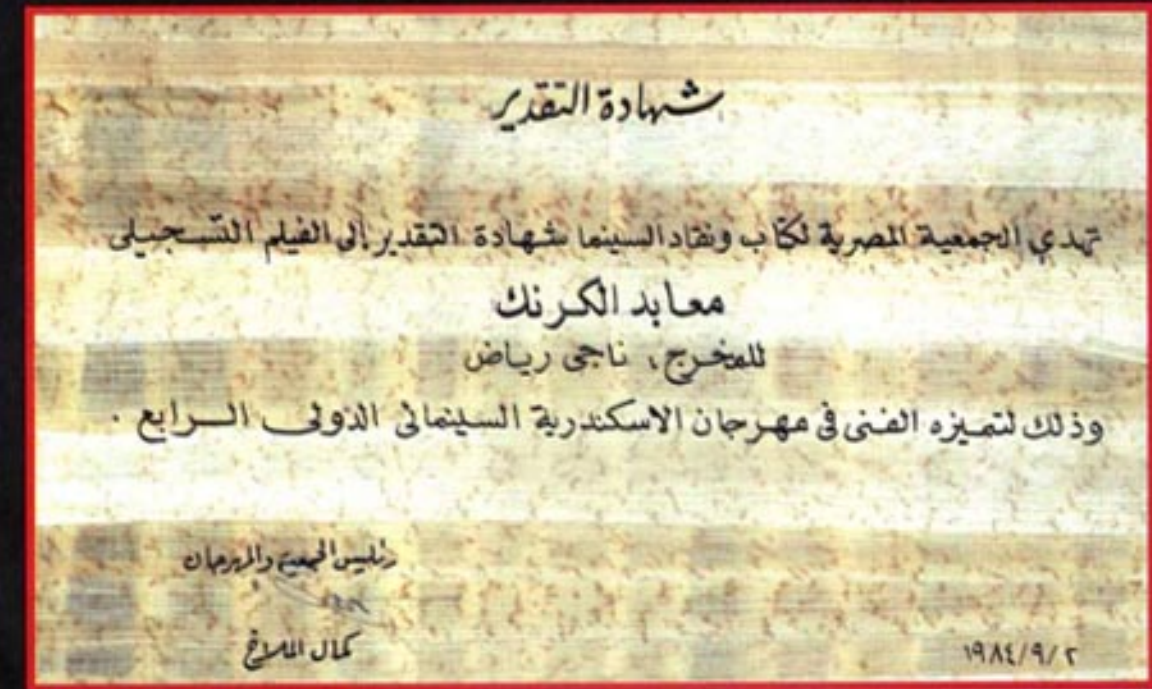 شهادة التقدير
تهدي الجمعية المصرية لكتاب ونقاد السينما شهادة التقدير إلى الفيلم التسجيلى
معابد الكرنك
للمخرج، ناجى رياض
وذلك لتميزه الفنى فى مهرجان الاسكندرية السينمائى الدولى الرابع .
رئيس الجمعية والمهرجان
كمال الملاخ
١٩٨٤/٩/٢